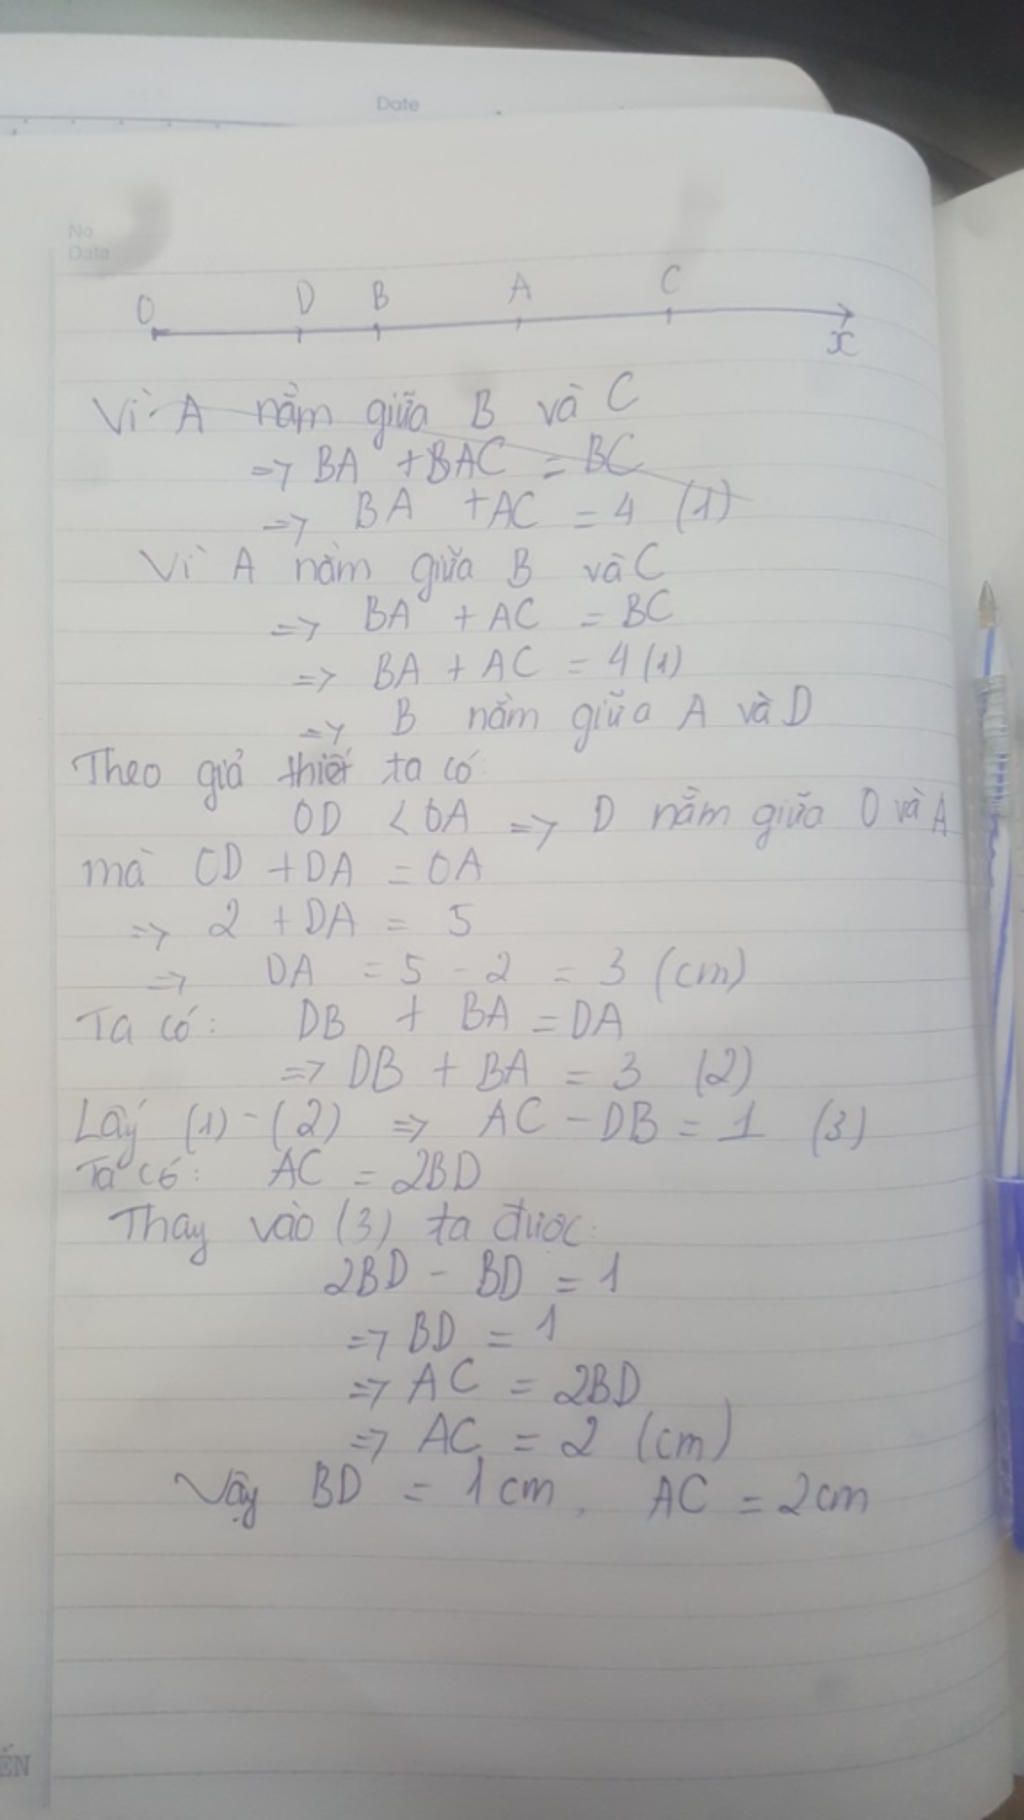 Date
No
Date
O D B A C
x
Vì A nằm giữa B và C
=> BA + BAC = BC
=> BA + AC = 4 (1)
Vì A nằm giữa B và C
=> BA + AC = BC
=> BA + AC = 4 (1)
=> B nằm giữa A và D
Theo giả thiết ta có
OD < OA => D nằm giữa O và A
mà OD + DA = OA
=> 2 + DA = 5
=> DA = 5 - 2 = 3 (cm)
Ta có: DB + BA = DA
=> DB + BA = 3 (2)
Lấy (1) - (2) => AC - DB = 1 (3)
Ta có: AC = 2BD
Thay vào (3) ta được:
2BD - BD = 1
=> BD = 1
=> AC = 2BD
=> AC = 2 (cm)
Vậy BD = 1 cm, AC = 2 cm
ẾN